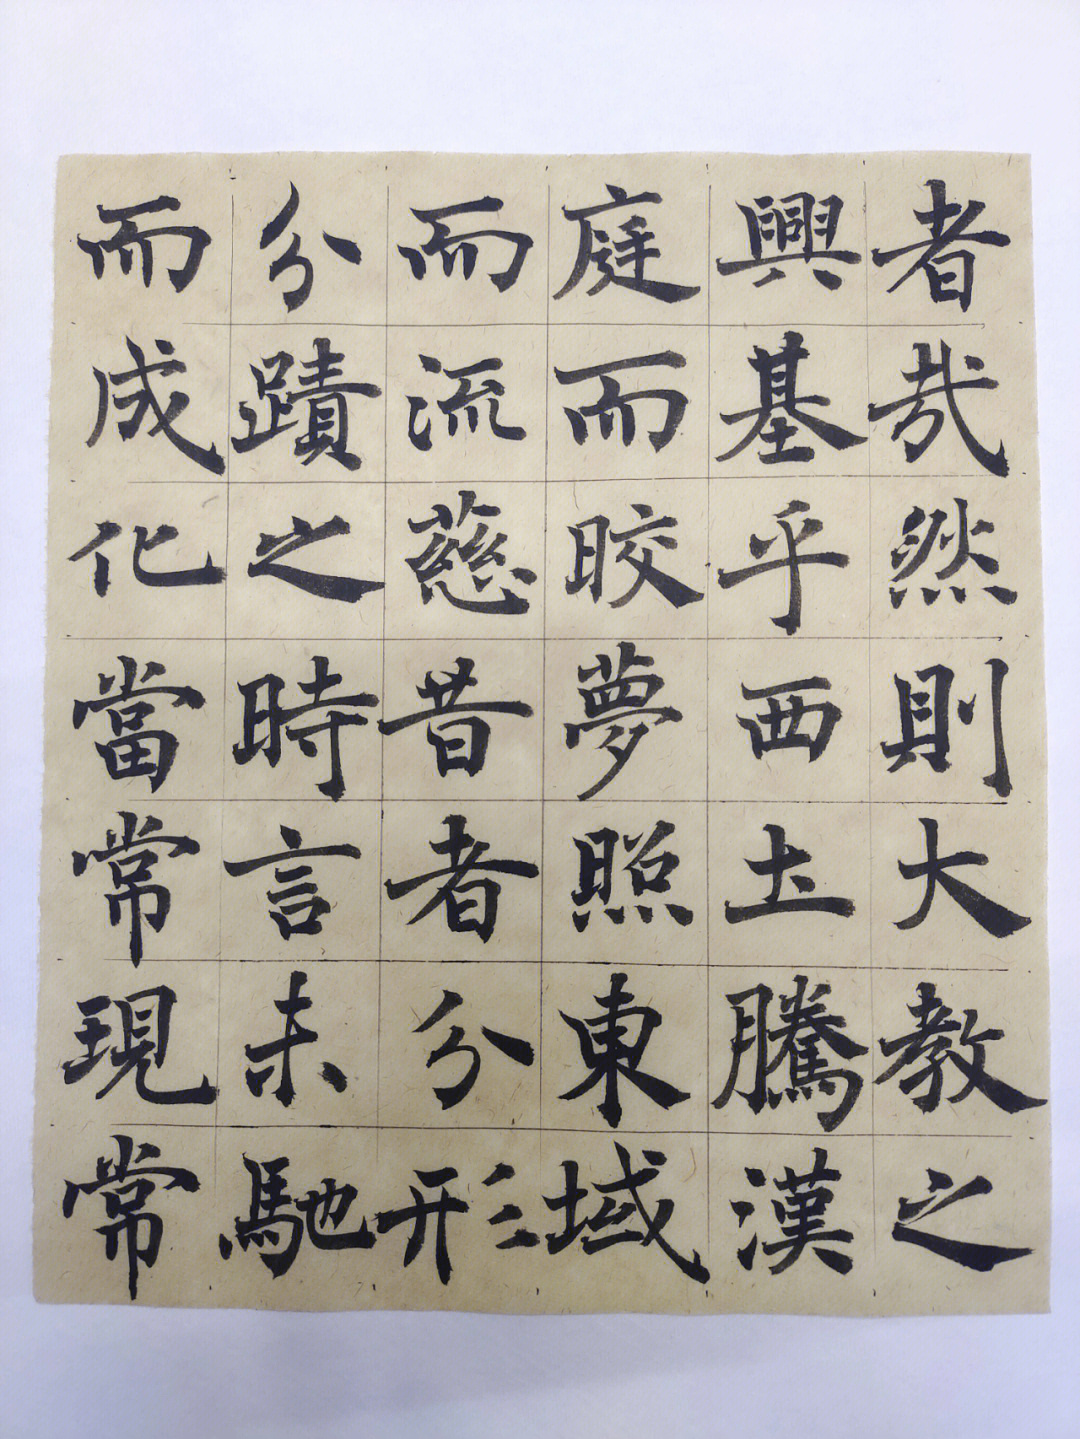 者哉然則大教之
興基乎西土騰漢
庭而晈夢照東域
而流慈昔者分形
分蹟之時言未馳
而成化當常現常